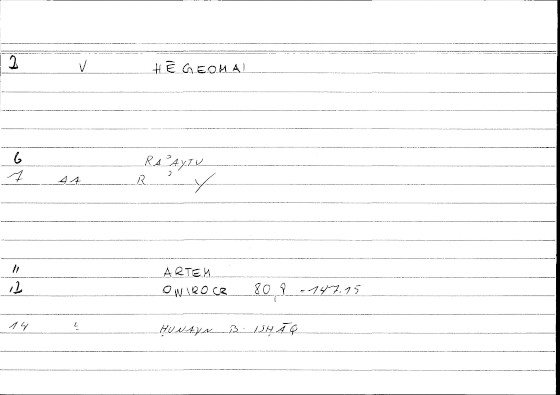 2 V HĒGEOMAI
6 RAʾAYTU
7 AA R ʾ Y
11 ARTEM
12 ONIROCR 80,9 - 147.15
14 ḤUNAYN B. ISḤĀQ